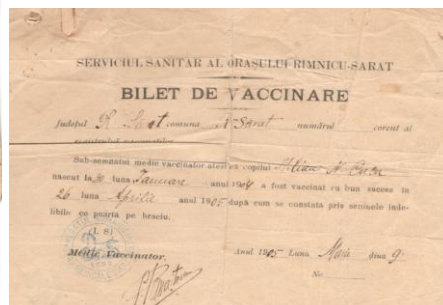 SERVICIUL SANITAR AL ORAȘULUI RIMNICU-SARAT
BILET DE VACCINARE
Județul R Sarat comuna R Sarat numărul cerut al
Sub-semnatul medic vaccinator atest că copilul
nascut la luna Ianuarie anul 1904 a fost vaccinat cu bun succes in
26 luna Aprilie anul 1905 după cum se constată prin semnele inde-
libile ce poartă pe brațiu.
(L. S)
Medic Vaccinator, Anul 1905 Luna ziua 9
No.